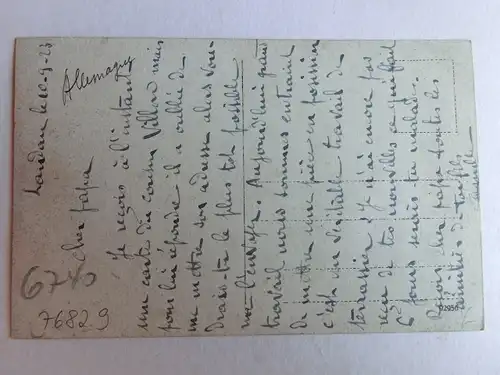 Landau le 10-9-23
Allemagne
Cher papa
Je reçois à l'instant
une carte du cousin Villon mais
pour lui répondre il a oublié de
me mettre son adresse alors vou-
drais-tu le plus tôt possible
me l'envoyer. Aujourd'hui grand
travail nous sommes en train
de mettre une pièce en position
c'est un véritable travail de
terrassier. Je n'ai encore pas
reçu de tes nouvelles a qui fait
6 jours serais-tu malade.
Reçois cher papa toutes les
amitiés de ton fils
675
76829
02950